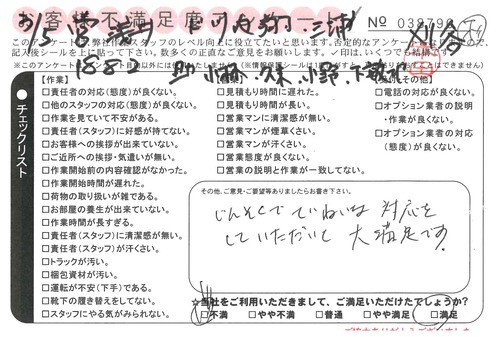 お客様不満足度アンケート
No 038790
このアンケートは、弊社作業スタッフのレベル向上に役立てたいと思います。否定的なアンケート
記入後シールを上に貼って下さい。数多くの正直なご意見をお願いします。✓印は、いくつでも結構です。
チェックリスト
【作業】
□責任者の対応(態度)が良くない。
□他のスタッフの対応(態度)が良くない。
□作業を見ていて不安がある。
□責任者(スタッフ)に好感が持てない。
□お客様への挨拶が出来ていない。
□ご近所への挨拶・気遣いが無い。
□作業開始前の内容確認がなかった。
□作業開始時間が遅れた。
□荷物の取り扱いが雑である。
□お部屋の養生が出来ていない。
□作業時間が長すぎる。
□責任者(スタッフ)に清潔感が無い。
□責任者(スタッフ)が汗くさい。
□トラックが汚い。
□梱包資材が汚い。
□運転が不安(下手)である。
□靴下の履き替えをしてない。
□スタッフにやる気がみられない。
□見積もり時間に遅れた。
□見積もり時間が長い。
□営業マンに清潔感が無い。
□営業マンが煙草くさい。
□営業マンが汗くさい。
□営業態度が良くない。
□営業の説明と作業が一致してない。
□電話の対応が良くない。
□オプション業者の説明
・作業が良くない。
□オプション業者の対応
(態度)が良くない。
その他、ご意見・ご要望等ありましたらお書き下さい。
じんそくでていねいな対応を
していただいて大満足です
☆当社をご利用いただきまして、ご満足いただけたでしょうか?
□不満 □やや不満 □普通 □やや満足 □満足